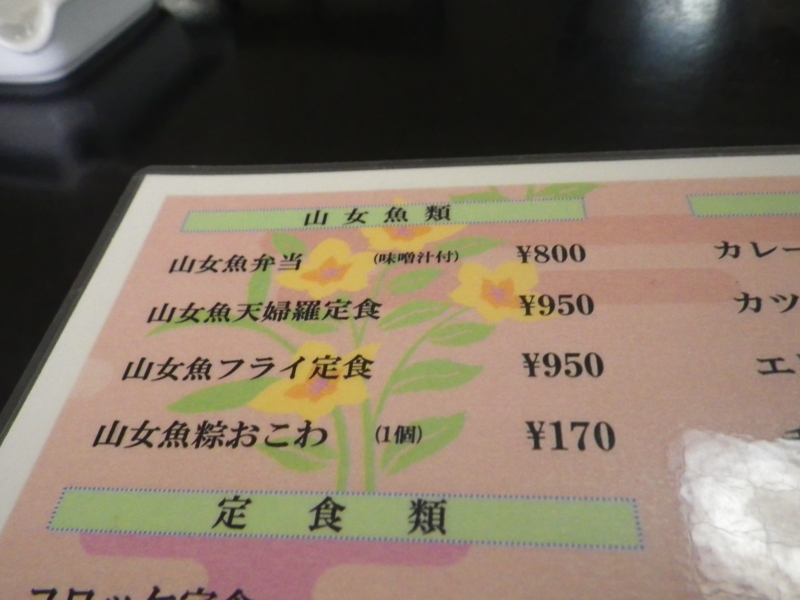 山女魚類
山女魚弁当 (味噌汁付) ¥800
山女魚天婦羅定食 ¥950
山女魚フライ定食 ¥950
山女魚粽おこわ (1個) ¥170
定食類
コロッケ定食
カレー
カツ
エ